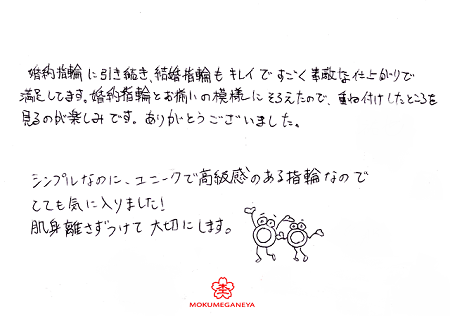 婚約指輪に引き続き、結婚指輪もキレイですごく素敵な仕上がりで
満足してます。婚約指輪とお揃いの模様にそろえたので、重ね付けしたところを
見るのが楽しみです。ありがとうございました。
シンプルなのに、ユニークで高級感のある指輪なので
とても気に入りました!
肌身離さずつけて大切にします。
MOKUMEGANEYA